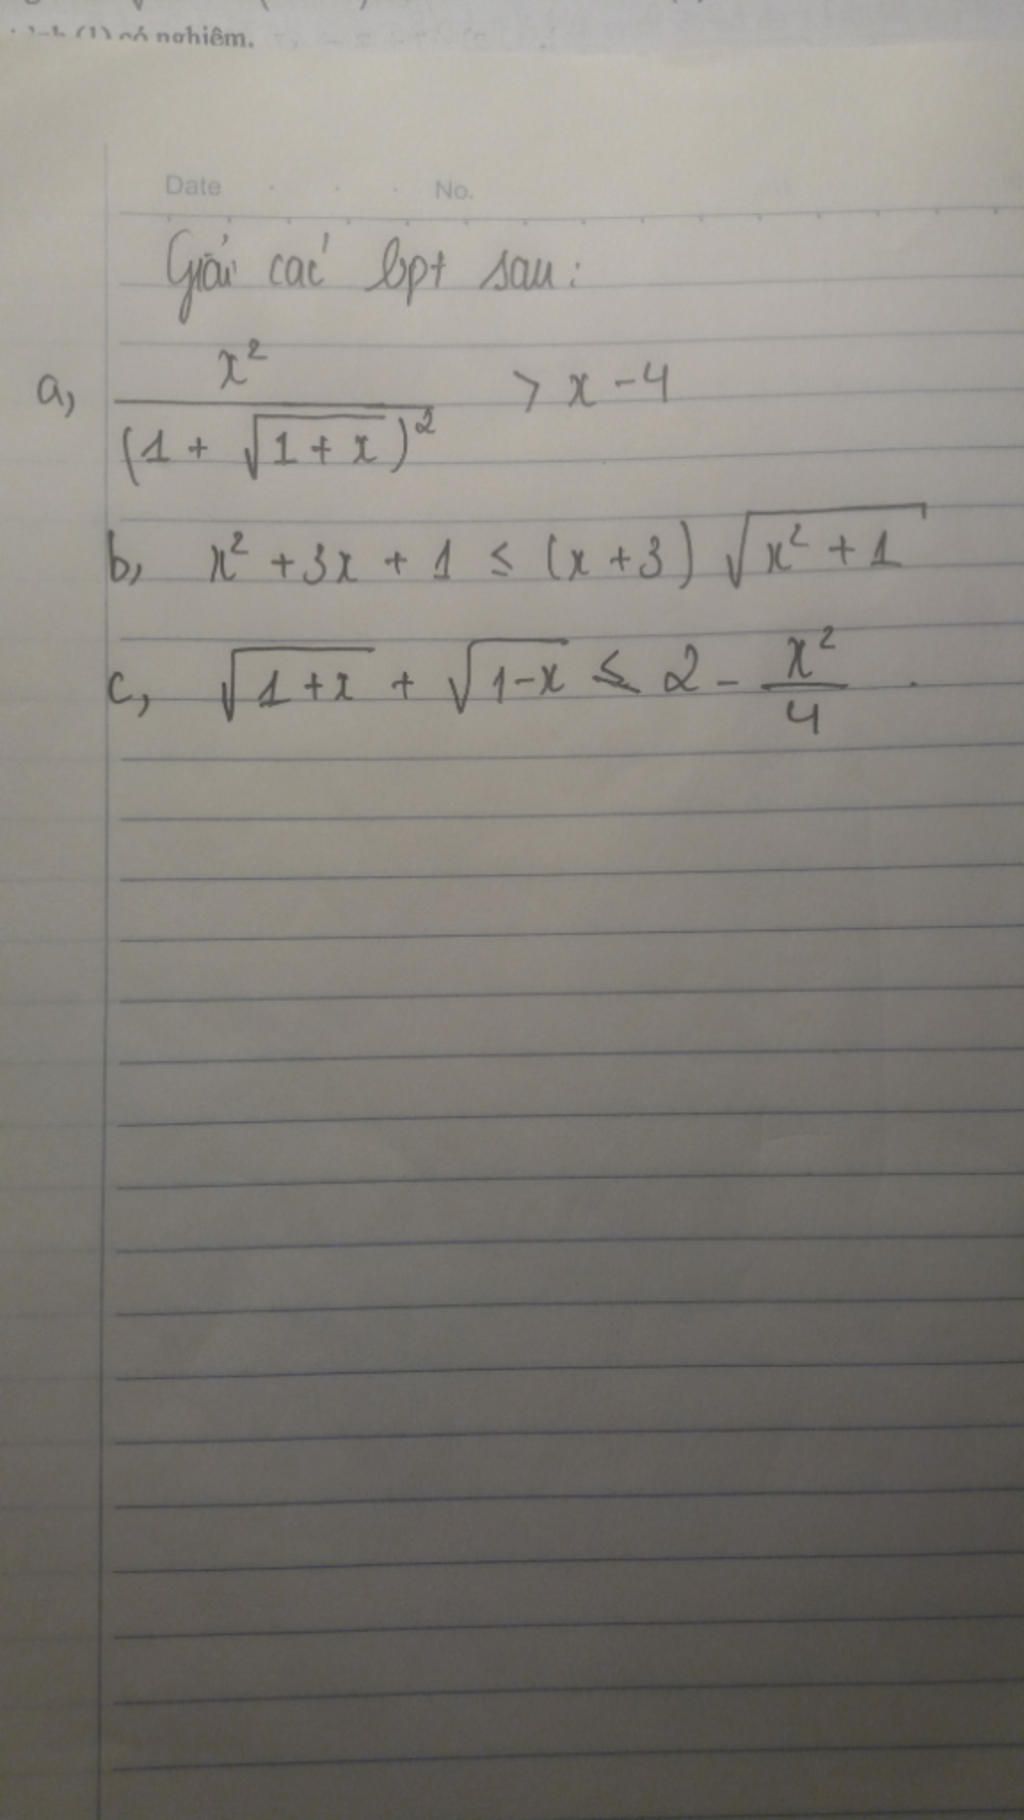 (1) có nghiệm.
Date No.
Giải các bpt sau:
a, x² / (1 + √(1+x))² > x - 4
b, x² + 3x + 1 ≤ (x + 3) √(x² + 1)
c, √(1+x) + √(1-x) ≤ 2 - x²/4 .